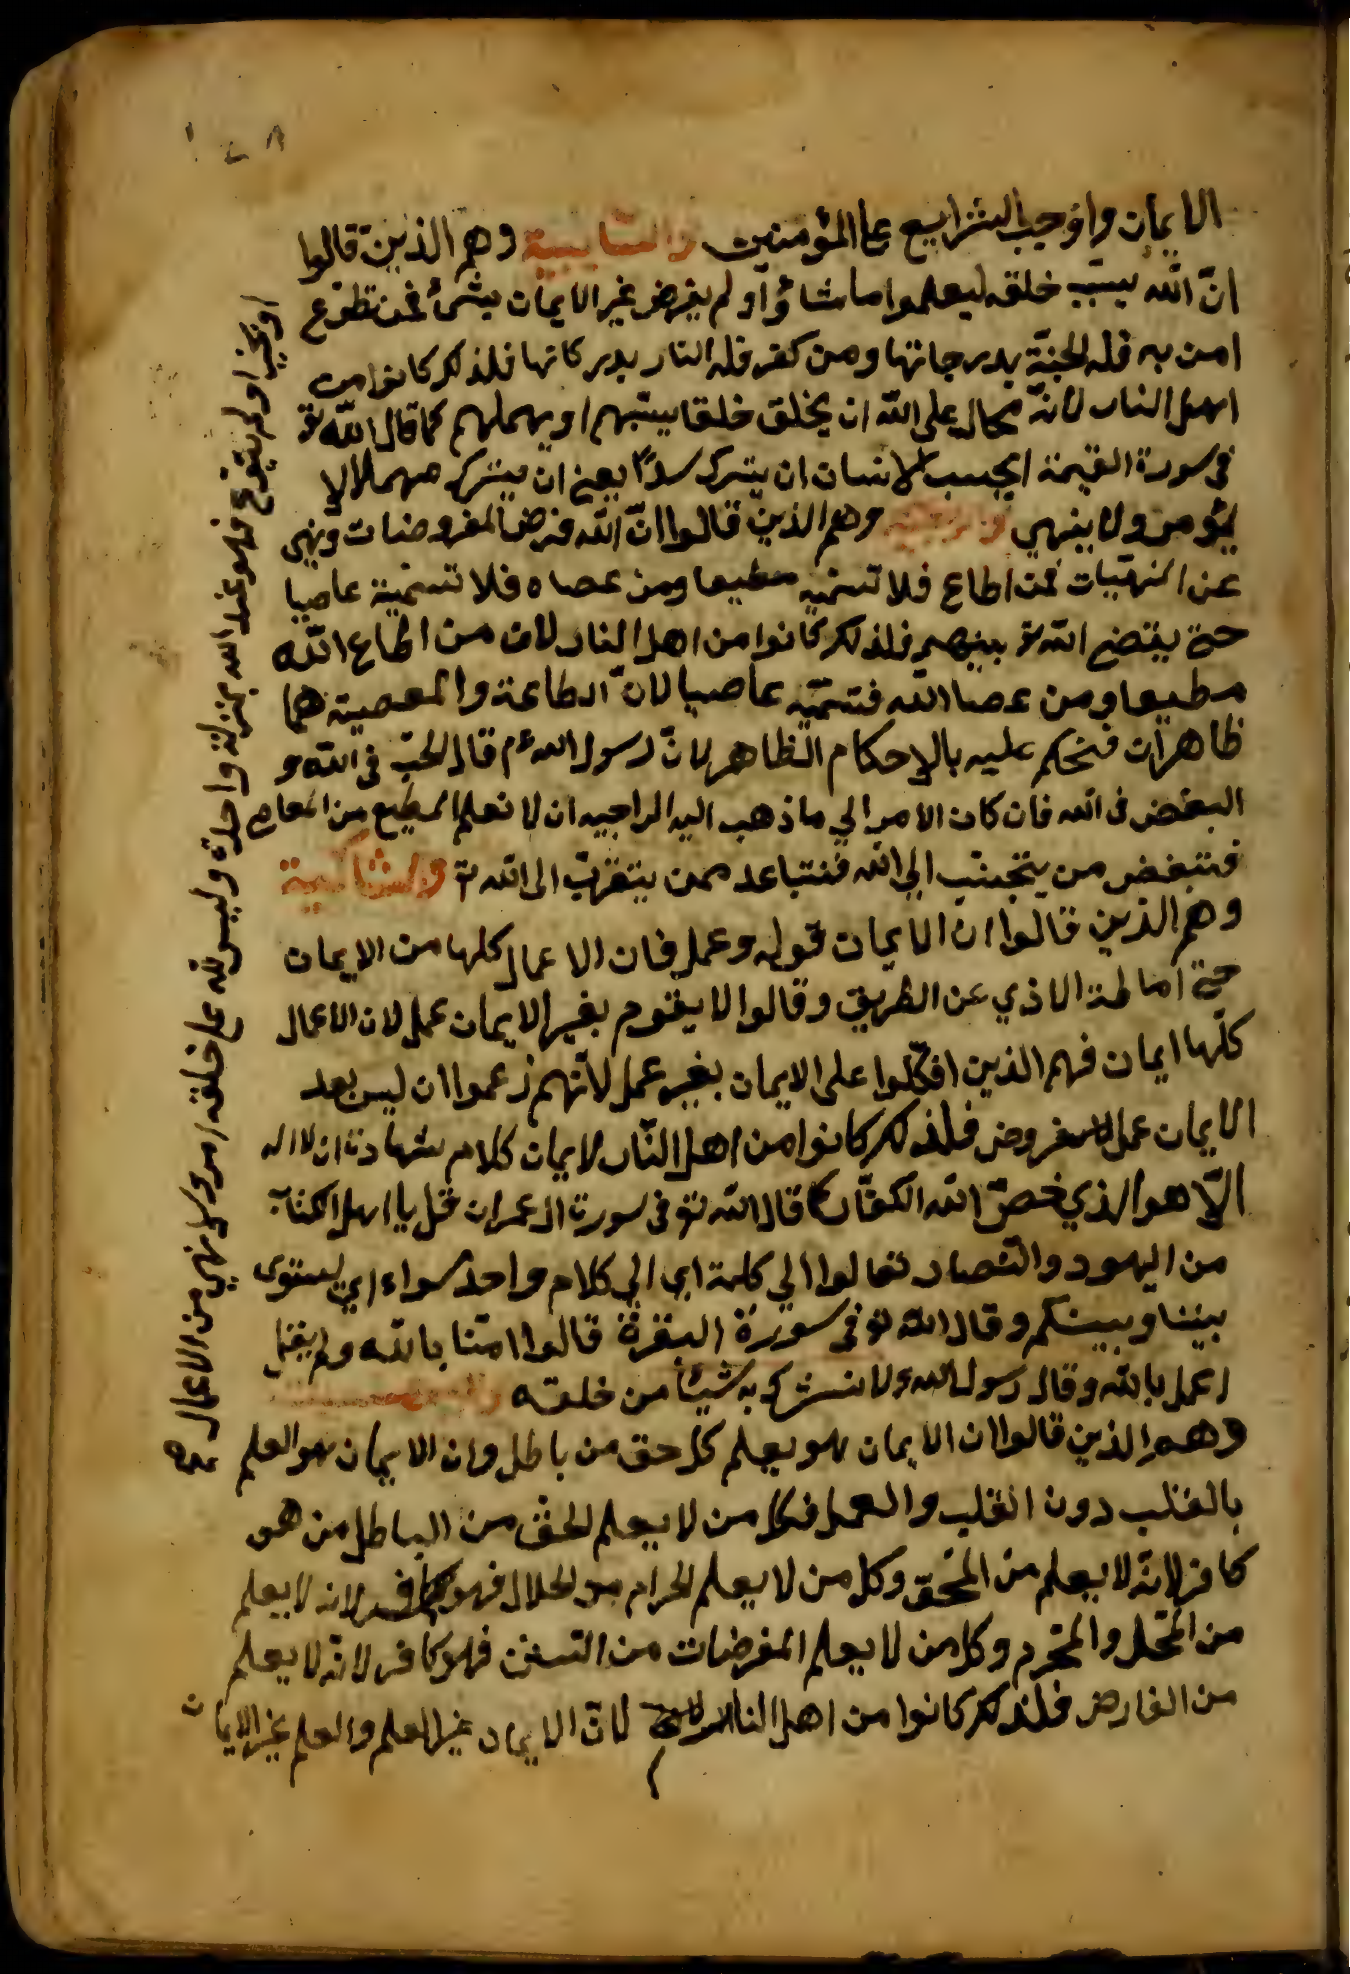 الايمان واوجب الشرايع على المؤمنين والسايبية وهم الذين قالوا
انّ الله سيّب خلقه ليعلموا ما شاؤا ولم يفرض غير الايمان بشئ فمن تطوع
امن به فله الجنّة بدرجاتها ومن كفر فله النار بدركاتها فلذلك كانوا من
اهل النار لانّه محال على الله ان يخلق خلقا يسيّبهم او يهملهم كما قال الله تع
في سورة القيمة ايحسب الانسان ان يترك سدًا يعني ان يترك مهملا لا
يؤمر ولا ينهي والراجيه وهم الذين قالوا انّ الله فرض المفروضات ونهي
عن المنهيّات فمن اطاع فلا تسمّيه مطيعا ومن عصاه فلا تسمّيه عاصيا
حتى يقضي الله تع بينهم فلذلك كانوا من اهل النار لان من اطاع الله
مطيعا ومن عصا الله فتسمّيه عاصيا لانّ الطاعة والمعصية هما
ظاهران فنحكم عليه بالاحكام الظاهر لانّ رسول الله عم قال الحبّ في الله و
البغض في الله فان كان الامر الي ما ذهب اليه الراجيه ان لا نعلم المطيع من العاصي
فنبغض من يتجنّب الي الله فنتباعد ممن يتقرّب الى الله تع والشاكية
وهم الذين قالوا ان الايمان قول وعمل فان الاعمال كلها من الايمان
حتى اماطة الاذي عن الطريق وقالوا لا يقوم بغير الايمان عمل لان الاعمال
كلّها ايمان فهم الذين اتكلوا على الايمان بغير عمل لانّهم زعموا ان ليس بعد
الايمان عمل مفروض فلذلك كانوا من اهل النّار لايمان كلام شهادة ان لا اله
الّا هو الذي خصّ الله الكفّار كما قال الله تع في سورة ال عمران قل يا اهل الكتاب
من اليهود والنصار تعالوا الي كلمة اي الي كلام واحد سواء اي يستوى
بيننا وبينكم وقال الله تع في سورة البقرة قالوا امنّا بالله ولم يقل
اعمل بالله وقال رسول الله ولا نشرك به شيئا من خلقه
وهم الذين قالوا ان الايمان هو يعلم كل حق من باطل وان الايمان هو العلم
بالقلب دون القلب والعمل فكل من لا يعلم الحقّ من الباطل من هو
كافر لانّه لا يعلم من المحقّ وكل من لا يعلم الحرام من الحلال فهو كافر لانه لا يعلم
من المحّلل والمحّرم وكل من لا يعلم المفرضات من السنن فهو كافر لانّه لا يعلم
من الفارض فلذلك كانوا من اهل النار لانّ الايمان غير العلم والعلم غير الايمان
او خيرا ولم يتورع فهو عند الله بمنزلة واحدة وليس لله على خلقه امر ولا نهي من الاعمال صح